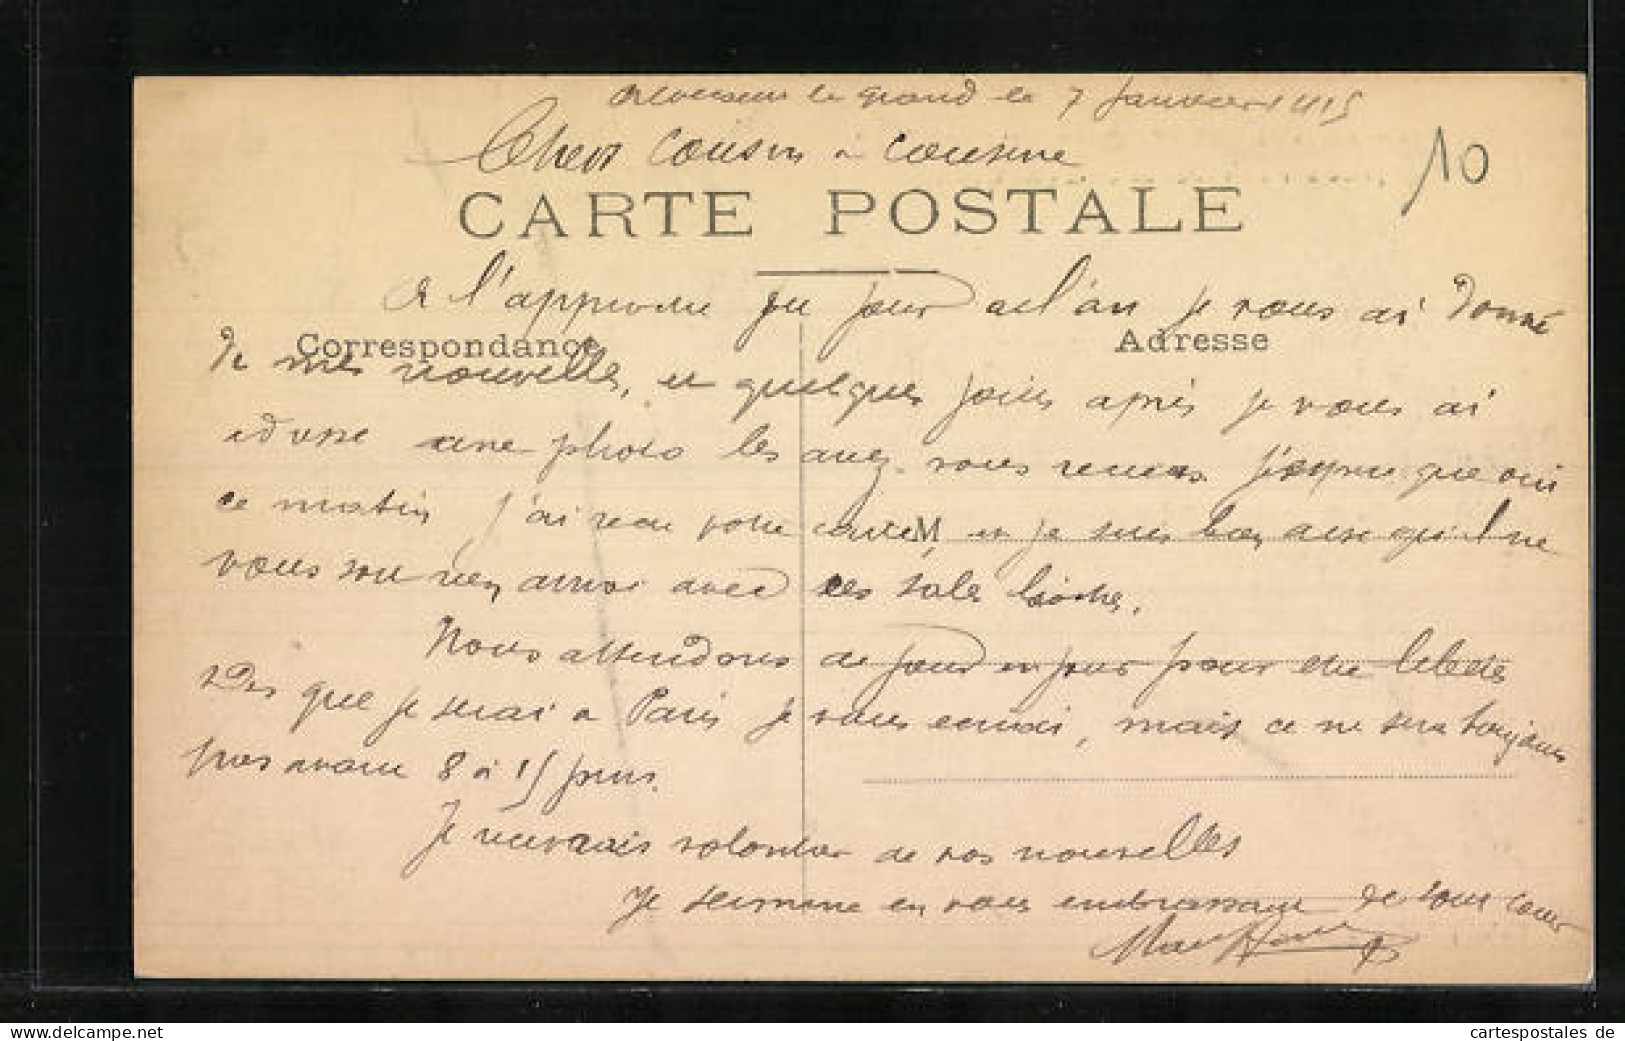 le grand le 7 Janvier 1915
Chers Cousin et Cousine
10
CARTE POSTALE
A l'approche du jour de l'an je vous ai donné
Correspondance
Adresse
de mes nouvelles, et quelques jours après je vous ai
une photo les avez vous reçues j'espère que oui
ce matin j'ai reçu votre carte et je suis bien aise qu'il ne
M
vous soit rien arrivé avec ces sales boches.
Nous attendons de jour en jour pour être
Dès que je serai à Paris je vous écrirai, mais ce ne sera toujours
pas avant 8 à 15 jours.
Je recevrais volontier de vos nouvelles
Je termine en vous embrassant de tout cœur
cartespostales de
www.delcampe.net